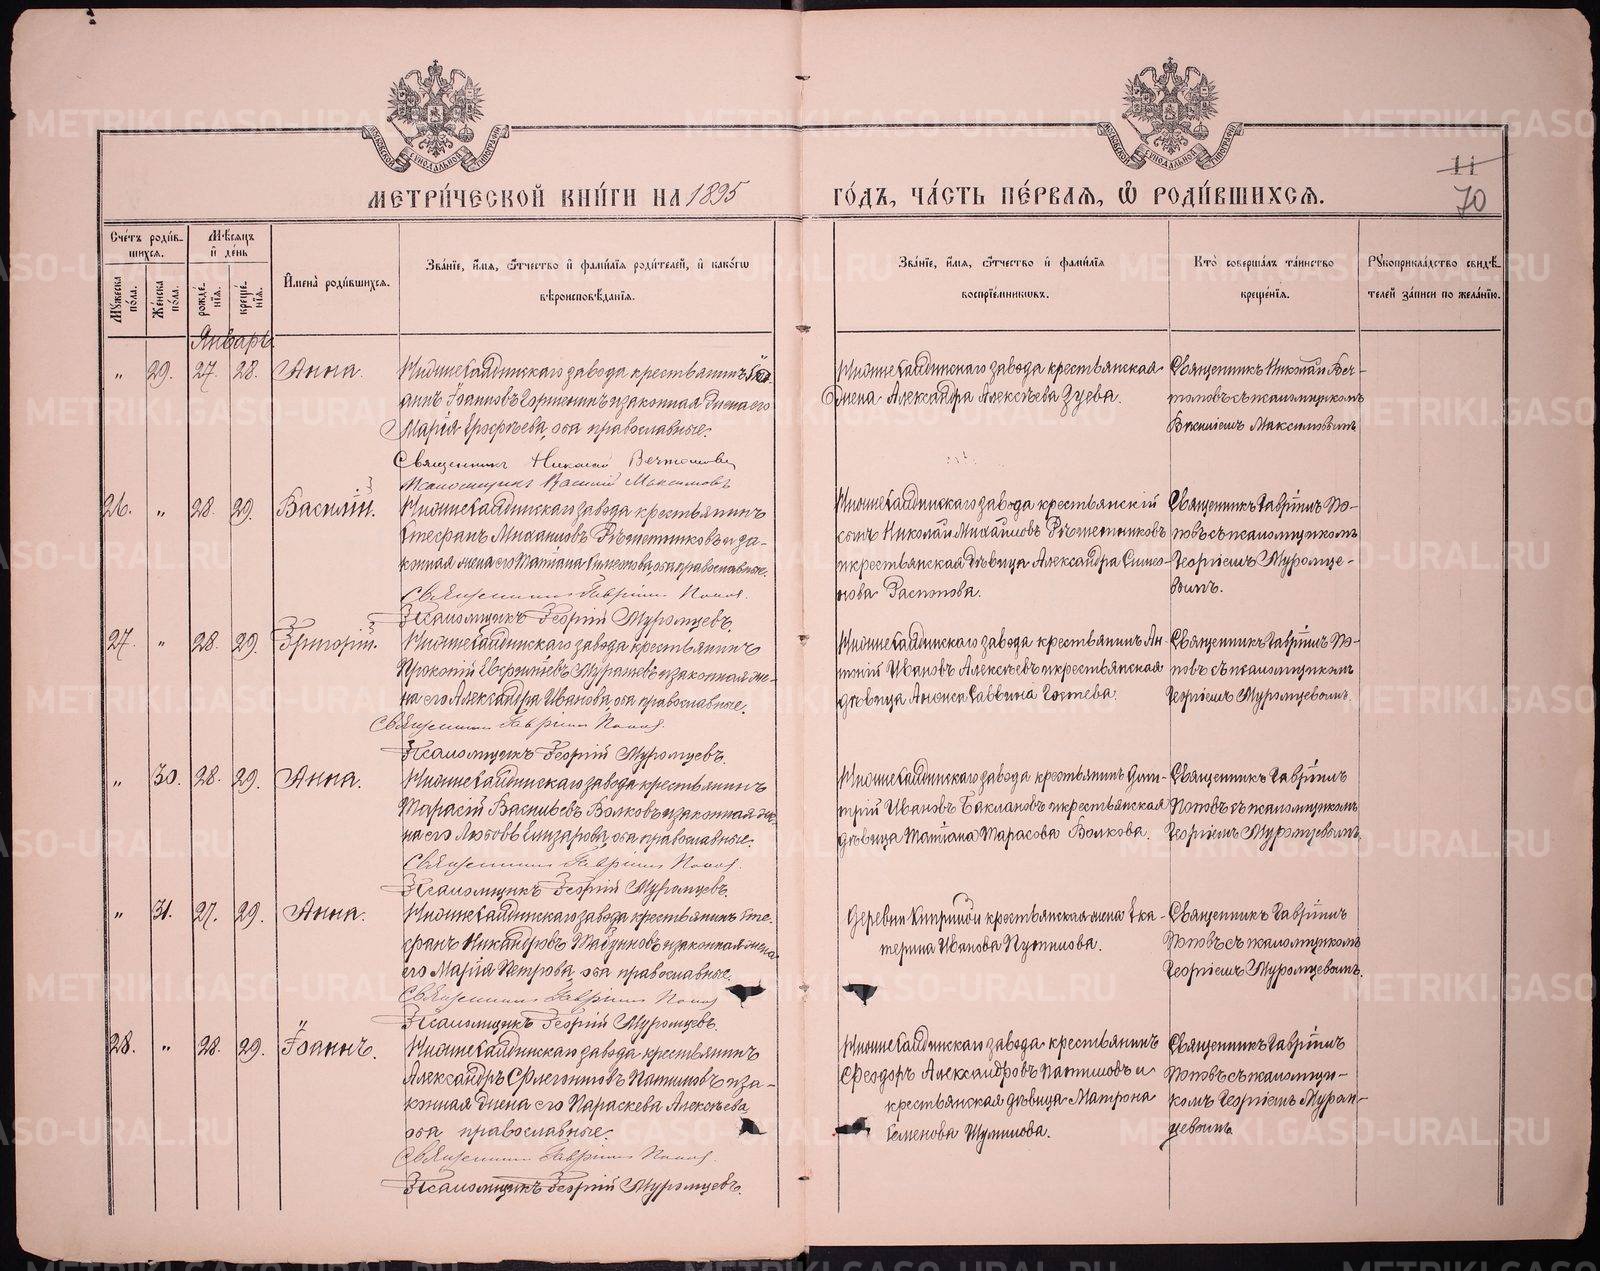 МЕТРИ́ЧЕСКОЙ КНИ́ГИ НА 1895
ГО́ДЪ, ЧА́СТЬ ПЕ́РВАѦ, Ѽ РОДИ́ВШИХСѦ.
11
70
Сче́тъ роди́в-
шихсѧ.
Мѣ́сѧцъ
и҆ де́нь
Мꙋжеска по́ла.
Же́нска по́ла.
рожде́-
нїѧ.
креще́-
нїѧ.
И҆мена̀ роди́вшихсѧ.
Зва́нїе, и҆́мѧ, ѻ҆́тчество и҆ фами́лїѧ роди́телей, и҆ како́гѡ
вѣроисповѣ́данїѧ.
Зва́нїе, и҆́мѧ, ѻ҆́тчество и҆ фами́лїѧ
воспрїе́мникѡвъ.
Кто̀ соверша́лъ та́инство
креще́нїѧ.
Рꙋкоприкла́дство свидѣ́-
телей за́писи по жела́нїю.
Январь.
„ 29. 27. 28. Анна.
Нижнесалдинскаго завода крестьянинъ Іо-
аннъ Іоанновъ Горшенинъ и законная жена его
Марія Ерофѣева, оба православные.
Священникъ Николай Вечтомовъ
Псаломщикъ Василій Максимовъ
Нижнесалдинскаго завода крестьянская
жена Александра Алексѣева Зуева.
Священникъ Николай Веч-
томовъ съ псаломщикомъ
Василіемъ Максимовымъ
26. „ 28. 29. Василій.
Нижнесалдинскаго завода крестьянинъ
Стефанъ Михаиловъ Рѣшетниковъ и за-
конная жена его Татіана, оба православные.
Священникъ Гавріилъ Поповъ.
Псаломщикъ Георгій Муромцевъ.
Нижнесалдинскаго завода крестьянскій
сынъ Николай Михаиловъ Рѣшетниковъ
и крестьянская дѣвица Александра Симео-
нова Распопова.
Священникъ Гавріилъ По-
повъ съ псаломщикомъ
Георгіемъ Муромце-
вымъ.
27. „ 28. 29. Григорій.
Нижнесалдинскаго завода крестьянинъ
Прокопій и законная же-
на его Александра Иванова, оба православные.
Священникъ Гавріилъ Поповъ.
Псаломщикъ Георгій Муромцевъ.
Нижнесалдинскаго завода крестьянинъ Ан-
Ивановъ Алексѣевъ и крестьянская
дѣвица Анфиса Саввина Гостева.
Священникъ Гавріилъ По-
повъ съ псаломщикомъ
Георгіемъ Муромцевымъ.
„ 30. 28. 29. Анна.
Нижнесалдинскаго завода крестьянинъ
Тарасій Васильевъ Волковъ и законная же-
на его Любовь Елизарова, оба православные.
Священникъ Гавріилъ Поповъ.
Псаломщикъ Георгій Муромцевъ.
Нижнесалдинскаго завода крестьянинъ Дми-
трій Ивановъ Баклановъ и крестьянская
дѣвица Татіана Тарасова Волкова.
Священникъ Гавріилъ
Поповъ съ псаломщикомъ
Георгіемъ Муромцевымъ.
„ 31. 27. 29. Анна.
Нижнесалдинскаго завода крестьянинъ Сте-
фанъ Никандровъ и законная жена
его Марія Петрова, оба православные.
Священникъ Гавріилъ Поповъ
Псаломщикъ Георгій Муромцевъ.
Деревни крестьянская жена Ека-
терина Иванова Путилова.
Священникъ Гавріилъ
Поповъ съ псаломщикомъ
Георгіемъ Муромцевымъ.
28. „ 28. 29. Іоаннъ.
Нижнесалдинскаго завода крестьянинъ
Александръ Флегонтовъ Патишовъ и за-
конная жена его Параскева Алексѣева
оба православные.
Священникъ Гавріилъ Поповъ.
Псаломщикъ Георгій Муромцевъ.
Нижнесалдинскаго завода крестьянинъ
Феодоръ Александровъ Патишовъ и
крестьянская дѣвица Матрона
Семенова Шумилова.
Священникъ Гавріилъ
Поповъ съ псаломщи-
комъ Георгіемъ Муром-
цевымъ
METRIKI.GASO-URAL.RU